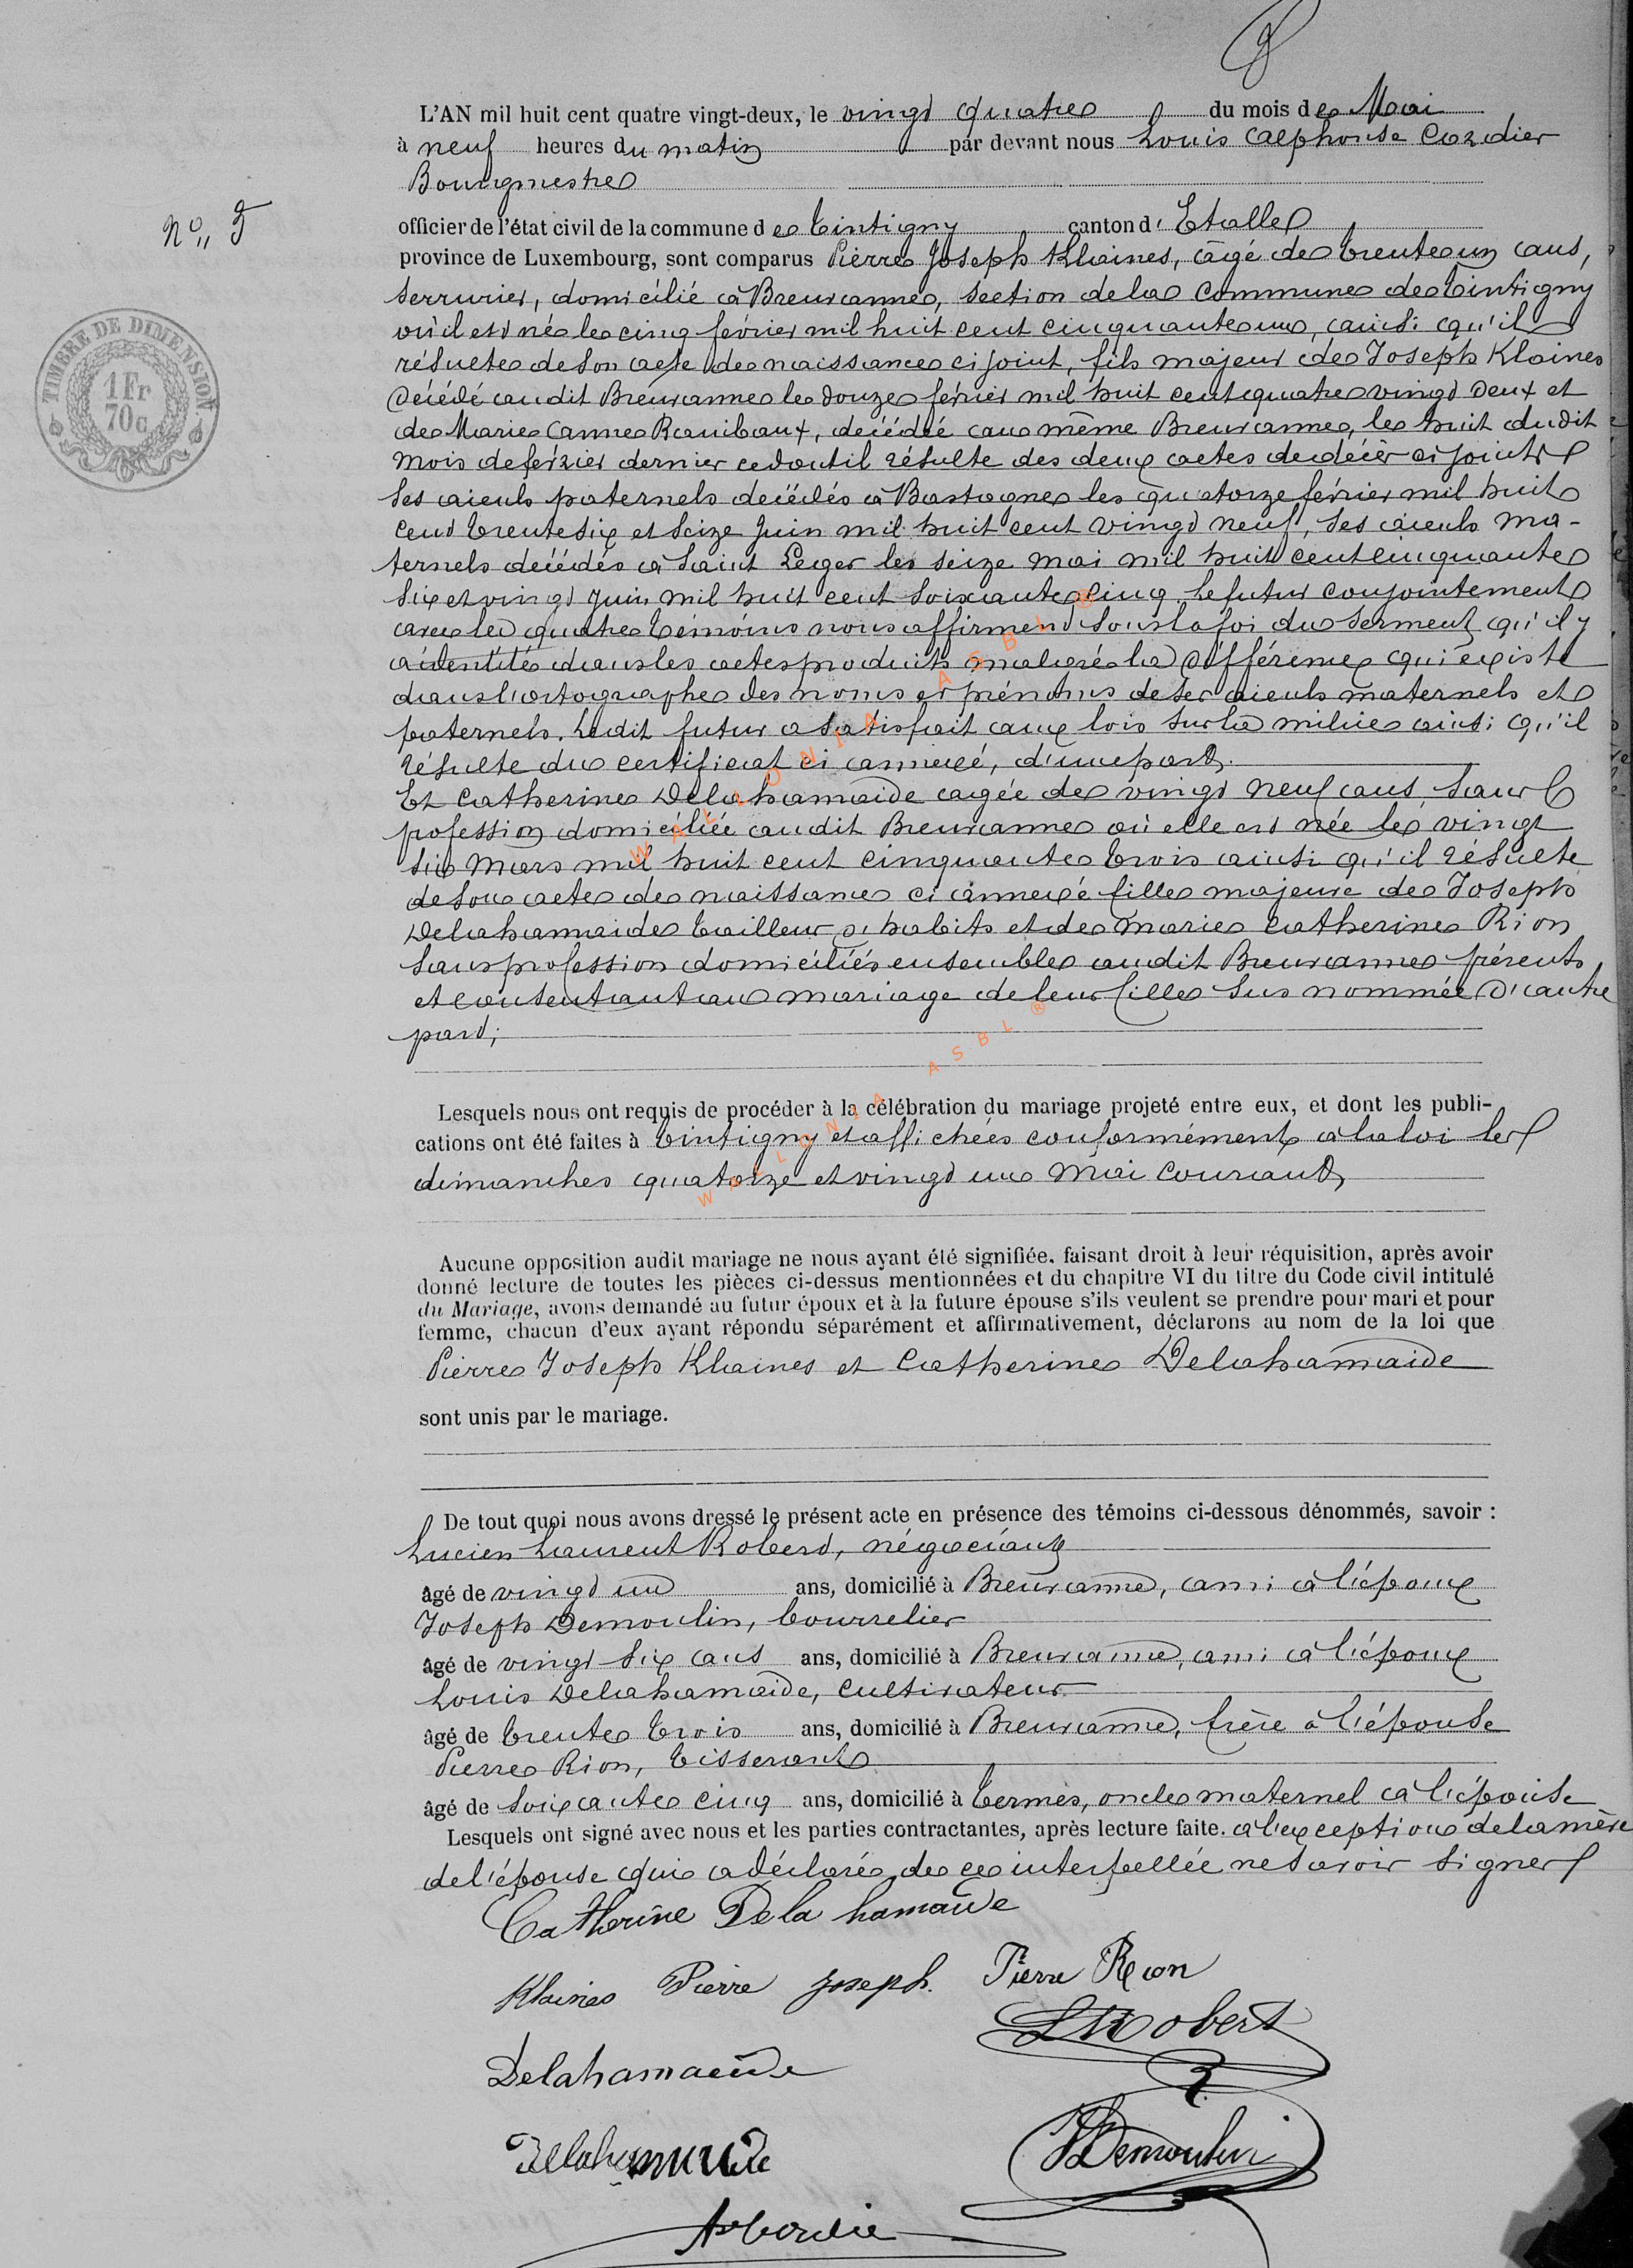 L'AN mil huit cent quatre vingt-deux, le vingt quatre du mois de Mai
à neuf heures du matin par devant nous Louis Alphonse Cordier
Bourgmestre
officier de l'état civil de la commune de Tintigny canton d'Etalle
N° 5
province de Luxembourg, sont comparus Pierre Joseph Klaines, âgé de trente un ans,
serrurier, domicilié à Breuvanne, section de la Commune de Tintigny
où il est né le cinq février mil huit cent cinquante un, ainsi qu'il
TIMBRE DE DIMENSION
1 Fr
70c
résulte de son acte de naissance ci joint, fils majeur de Joseph Klaines
décédé audit Breuvanne le douze février mil huit cent quatre vingt deux et
de Marie Anne Rauibaux, décédée au même Breuvanne, le huit dudit
mois de février dernier ce dont il résulte des deux actes de décès ci joints
Ses aieuls paternels décédés à Bastogne les quatorze février mil huit
cent trente six et seize Juin mil huit cent vingt neuf, ses aieuls ma-
ternels décédés à Saint Léger les seize mai mil huit cent cinquante
six et vingt juin mil huit cent soixante cinq. Le futur conjointement
avec les quatre témoins nous affirment sous la foi du serment qu'il y
a identité dans les actes produits malgré la différence qui existe
dans l'ortographe des noms et prénoms de ses aieuls maternels et
paternels. Ledit futur a satisfait aux lois sur la milice ainsi qu'il
résulte du certificat ci annexé, d'une part.
Et Catherine Delahamaide agée de vingt neuf ans, sans
profession domiciliée audit Breuvanne où elle est née le vingt
six Mars mil huit cent cinquante trois ainsi qu'il résulte
de son acte de naissance ci annexé fille majeure de Joseph
Delahamaide tailleur d'habits et de Marie Catherine Rion
sans profession domiciliés ensemble audit Breuvanne présents
et consentant au mariage de leur fille sus nommée d'autre
part;
WALLONIA ASBL ®
Lesquels nous ont requis de procéder à la célébration du mariage projeté entre eux, et dont les publi-
cations ont été faites à Tintigny et affichées conformément à la loi les
dimanches quatorze et vingt un Mai courant
WALLONIA ASBL ®
Aucune opposition audit mariage ne nous ayant été signifiée. faisant droit à leur réquisition, après avoir
donné lecture de toutes les pièces ci-dessus mentionnées et du chapitre VI du titre du Code civil intitulé
du Mariage, avons demandé au futur époux et à la future épouse s'ils veulent se prendre pour mari et pour
femme, chacun d'eux ayant répondu séparément et affirmativement, déclarons au nom de la loi que
Pierre Joseph Klaines et Catherine Delahamaide
sont unis par le mariage.
De tout quoi nous avons dressé le présent acte en présence des témoins ci-dessous dénommés, savoir :
Lucien Laurent Robert, négociant
âgé de vingt un ans, domicilié à Breuvanne, ami à l'époux
Joseph Demoulin, bourrelier
âgé de vingt six ans ans, domicilié à Breuvanne, ami à l'époux
Louis Delahamaide, cultivateur
âgé de trente trois ans, domicilié à Breuvanne, frère à l'épouse
Pierre Rion, tisserant
âgé de soixante cinq ans, domicilié à Termes, oncle maternel à l'épouse
Lesquels ont signé avec nous et les parties contractantes, après lecture faite. à l'exception de la mère
de l'épouse qui a déclaré de ce interpellée ne savoir signer
Catherine Dela hamaide
Klaines Pierre Joseph. Pierre Rion
LRobert
Delahamaide
Delahamaide
JDemoulin
ACordier